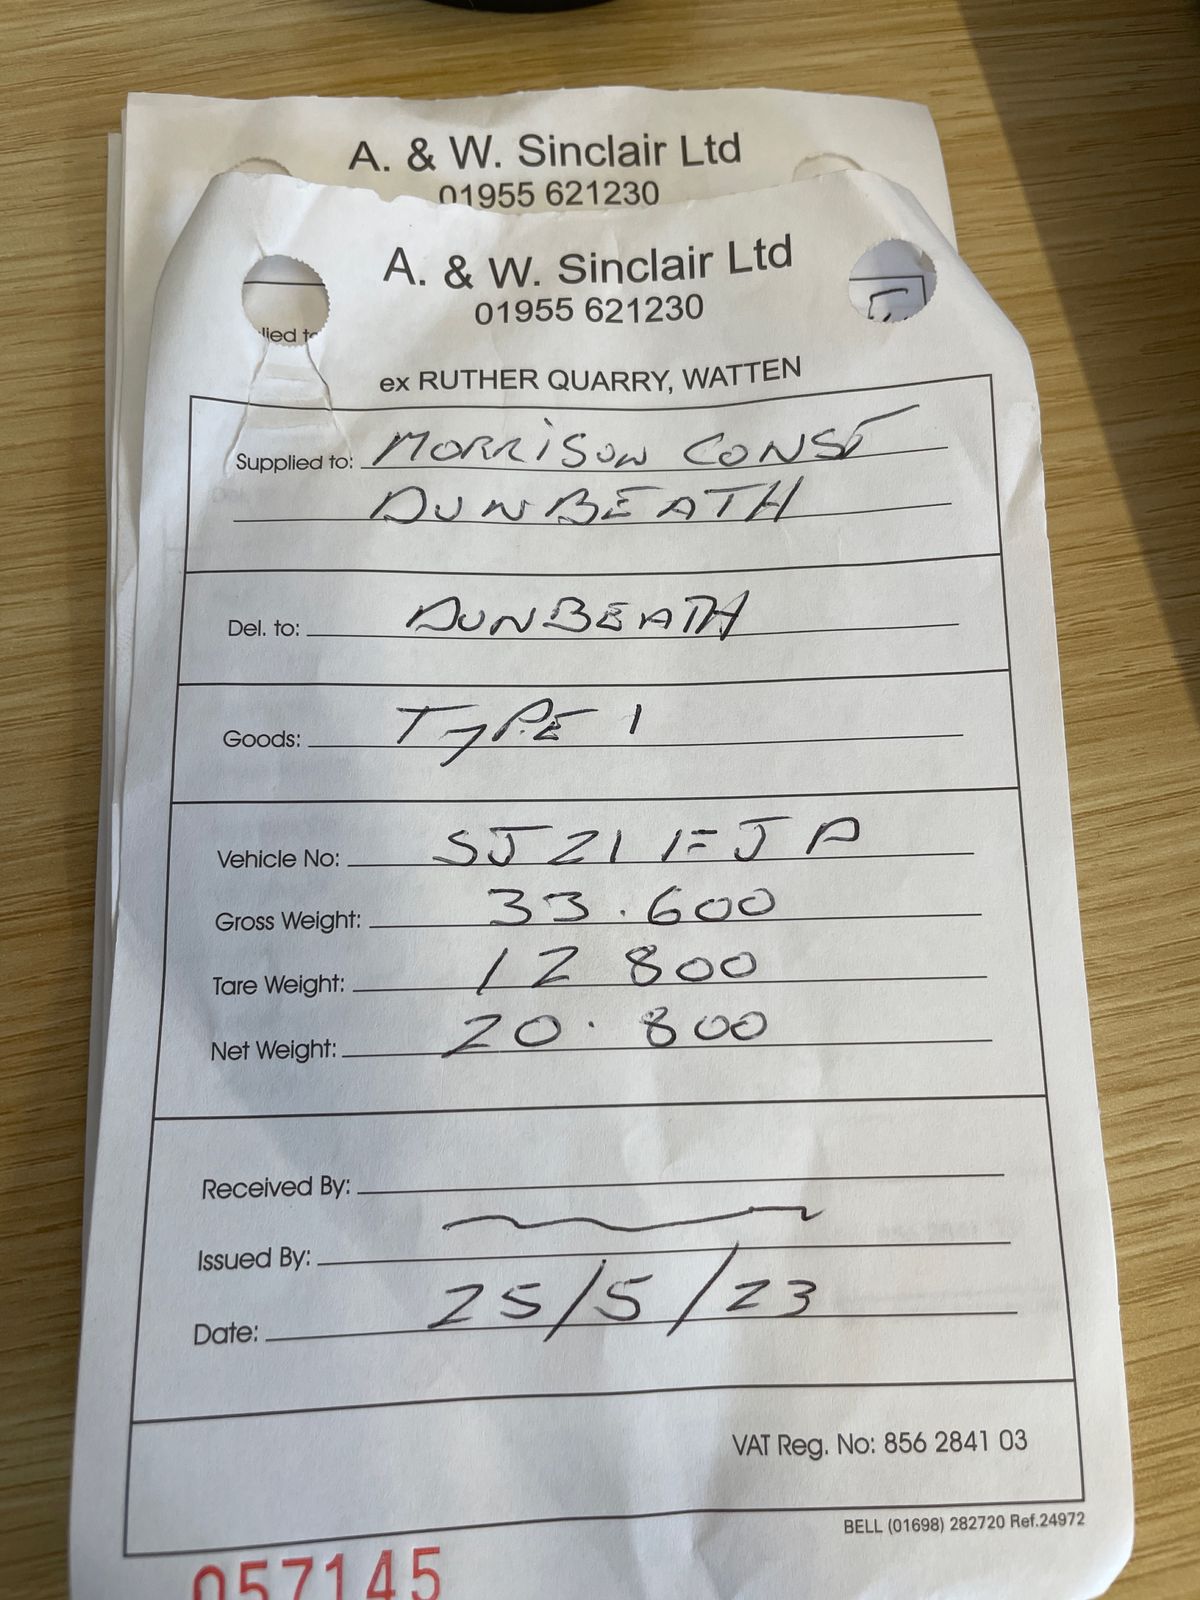 A. & W. Sinclair Ltd
01955 621230
A. & W. Sinclair Ltd
01955 621230
lied to
ex RUTHER QUARRY, WATTEN
Supplied to: MORRISON CONST
DUNBEATH
Del. to: DUNBEATH
Goods: TYPE 1
Vehicle No: SJ21 FJA
Gross Weight: 33.600
Tare Weight: 12 800
Net Weight: 20.800
Received By:
Issued By:
Date: 25/5/23
VAT Reg. No: 856 2841 03
BELL (01698) 282720 Ref.24972
057145